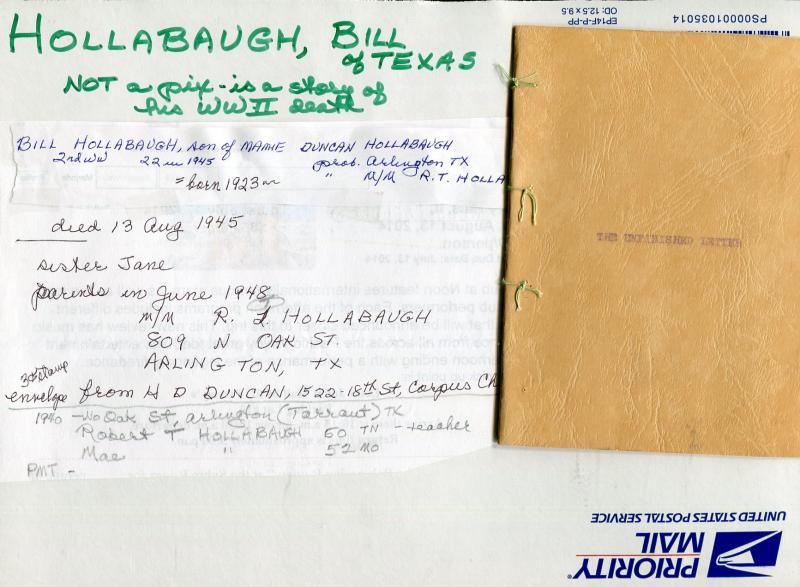 HOLLABAUGH, BILL
of TEXAS
NOT a pix - is a story of
his WW II death
BILL HOLLABAUGH, son of MAMIE DUNCAN HOLLABAUGH
2nd WW 22 in 1945 prob. Arlington TX
= born 1923 or " M/M R.T. HOLLA
died 13 Aug 1945
sister Jane
parents in June 1948
M/M R. T HOLLABAUGH
809 N OAK ST.
ARLINGTON, TX
3¢ stamp
envelope from H D DUNCAN, 1522-18th St, Corpus Ch
1940 - No Oak St, Arlington (Tarrant) TX
Robert T HOLLABAUGH 60 TN - teacher
Mae " 52 MO
PMT -
THE UNFINISHED LETTER
PS00001035014
EP14F-P-PP
OD: 12.5 x 9.5
August 13, 2014
Due Date: July 13, 2014
UNITED STATES POSTAL SERVICE
PRIORITY
MAIL